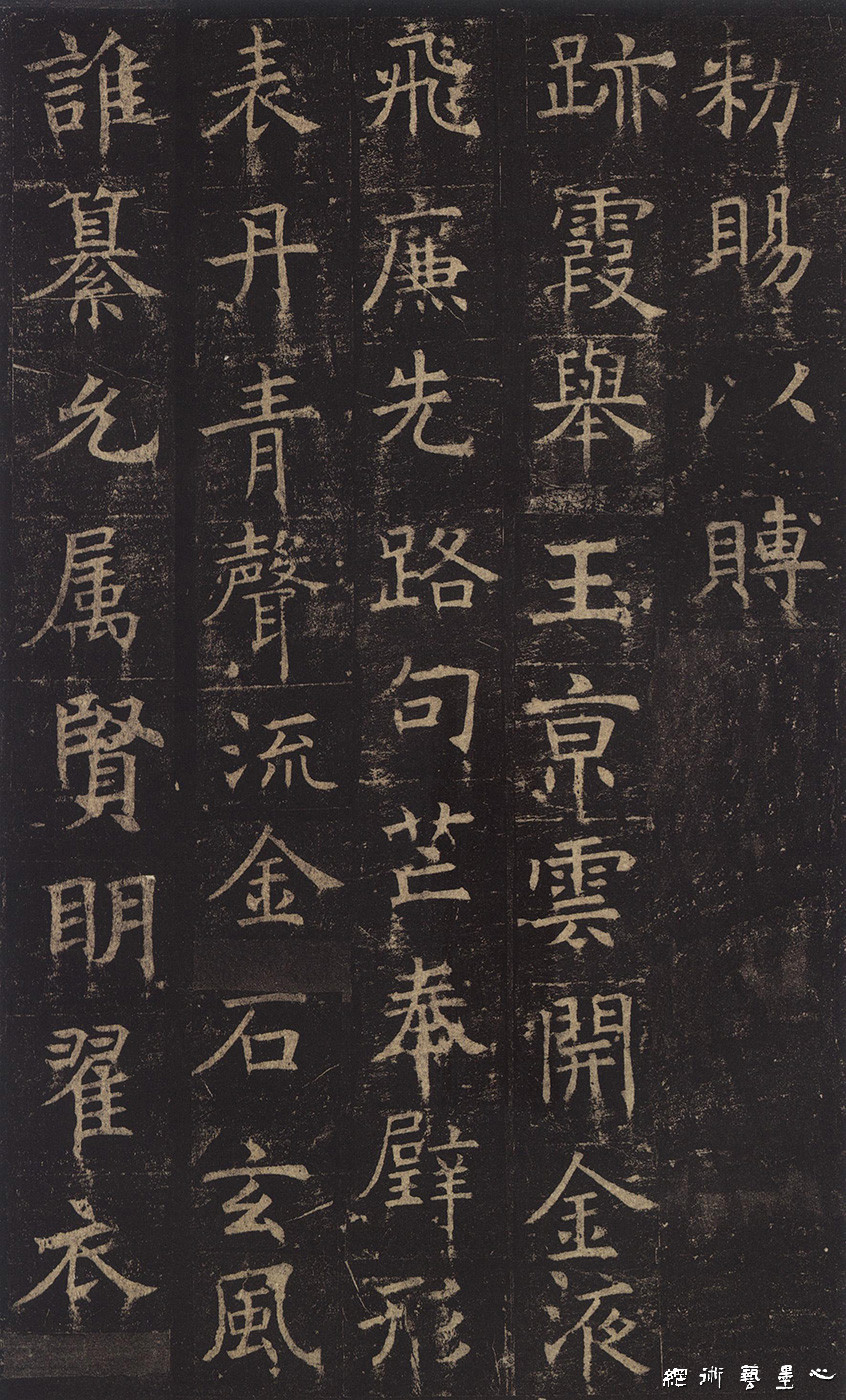 勑賜以賻
跡霞舉玉亰雲開金液
飛廉先路句芒奉璧形
表丹青聲流金石玄風
誰纂允属賢眀翟衣
心墨藝術網